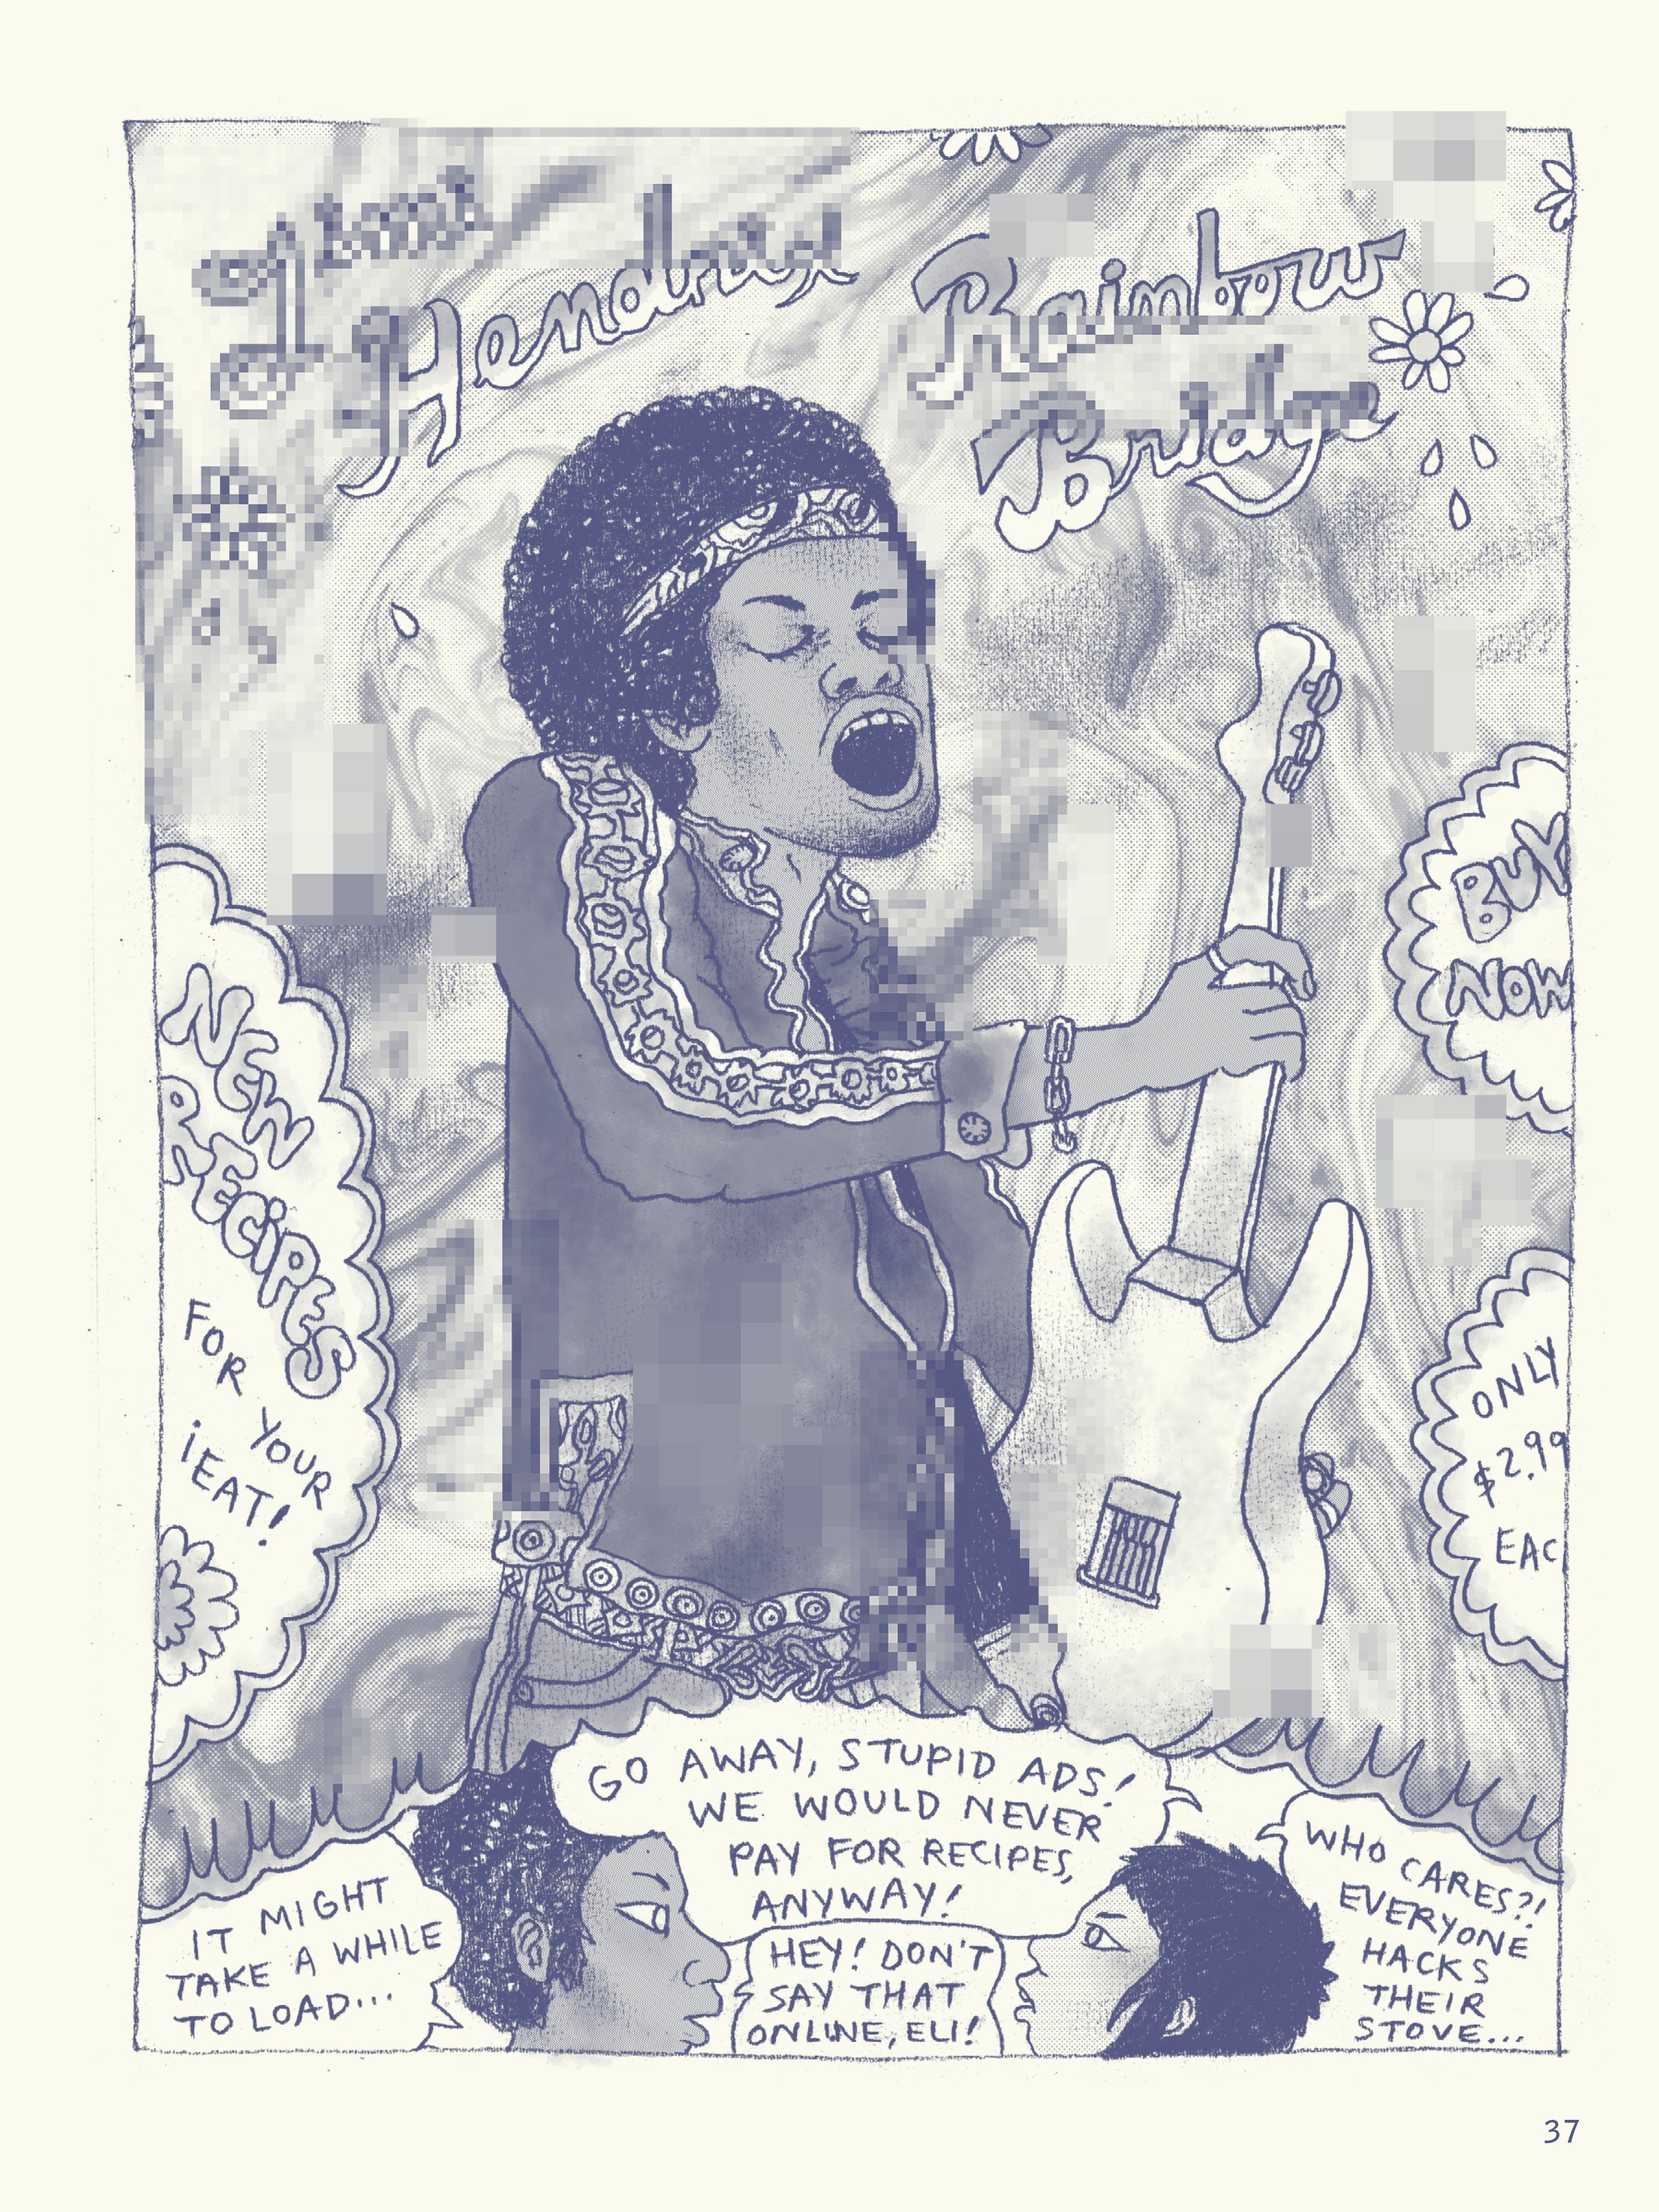 Jimi
Hendrix
Rainbow
Bridge
BUY
NOW
NEW
RECIPES
FOR
YOUR
iEAT!
ONLY
$2.99
EAC
GO AWAY, STUPID ADS!
WE WOULD NEVER
PAY FOR RECIPES,
ANYWAY!
IT MIGHT
TAKE A WHILE
TO LOAD...
HEY! DON'T
SAY THAT
ONLINE, ELI!
WHO CARES?!
EVERYONE
HACKS
THEIR
STOVE...
37